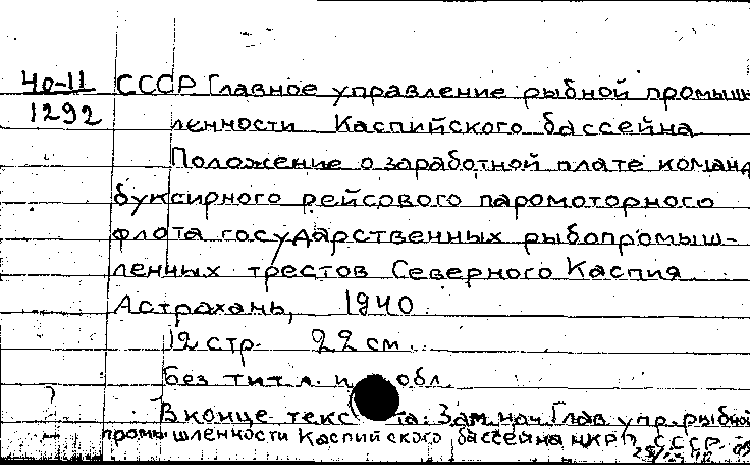 40-11
1292
СССР Главное управление рыбной промыш
ленности Каспийского бассейна
Положение о заработной плате команд
буксирного рейсового паромоторного
флота государственных рыбопромыш-
ленных трестов Северного Каспия
Астрахань, 1940.
12 стр. 22 см.
Без тит. л. и обл.
В конце текста: Зам. нач. Глав. упр. рыбной
промышленности Каспийского бассейна НКРП СССР